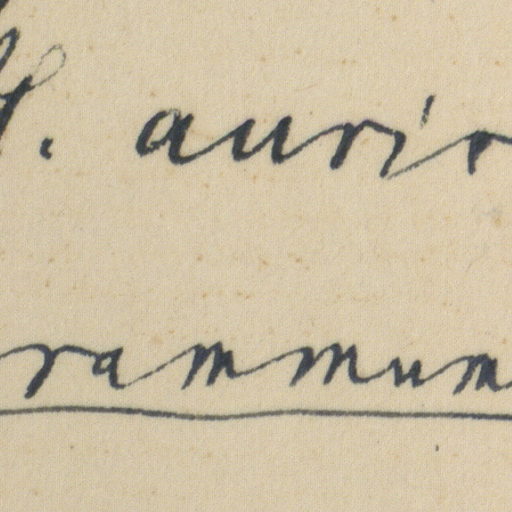 H. aurir
rammum